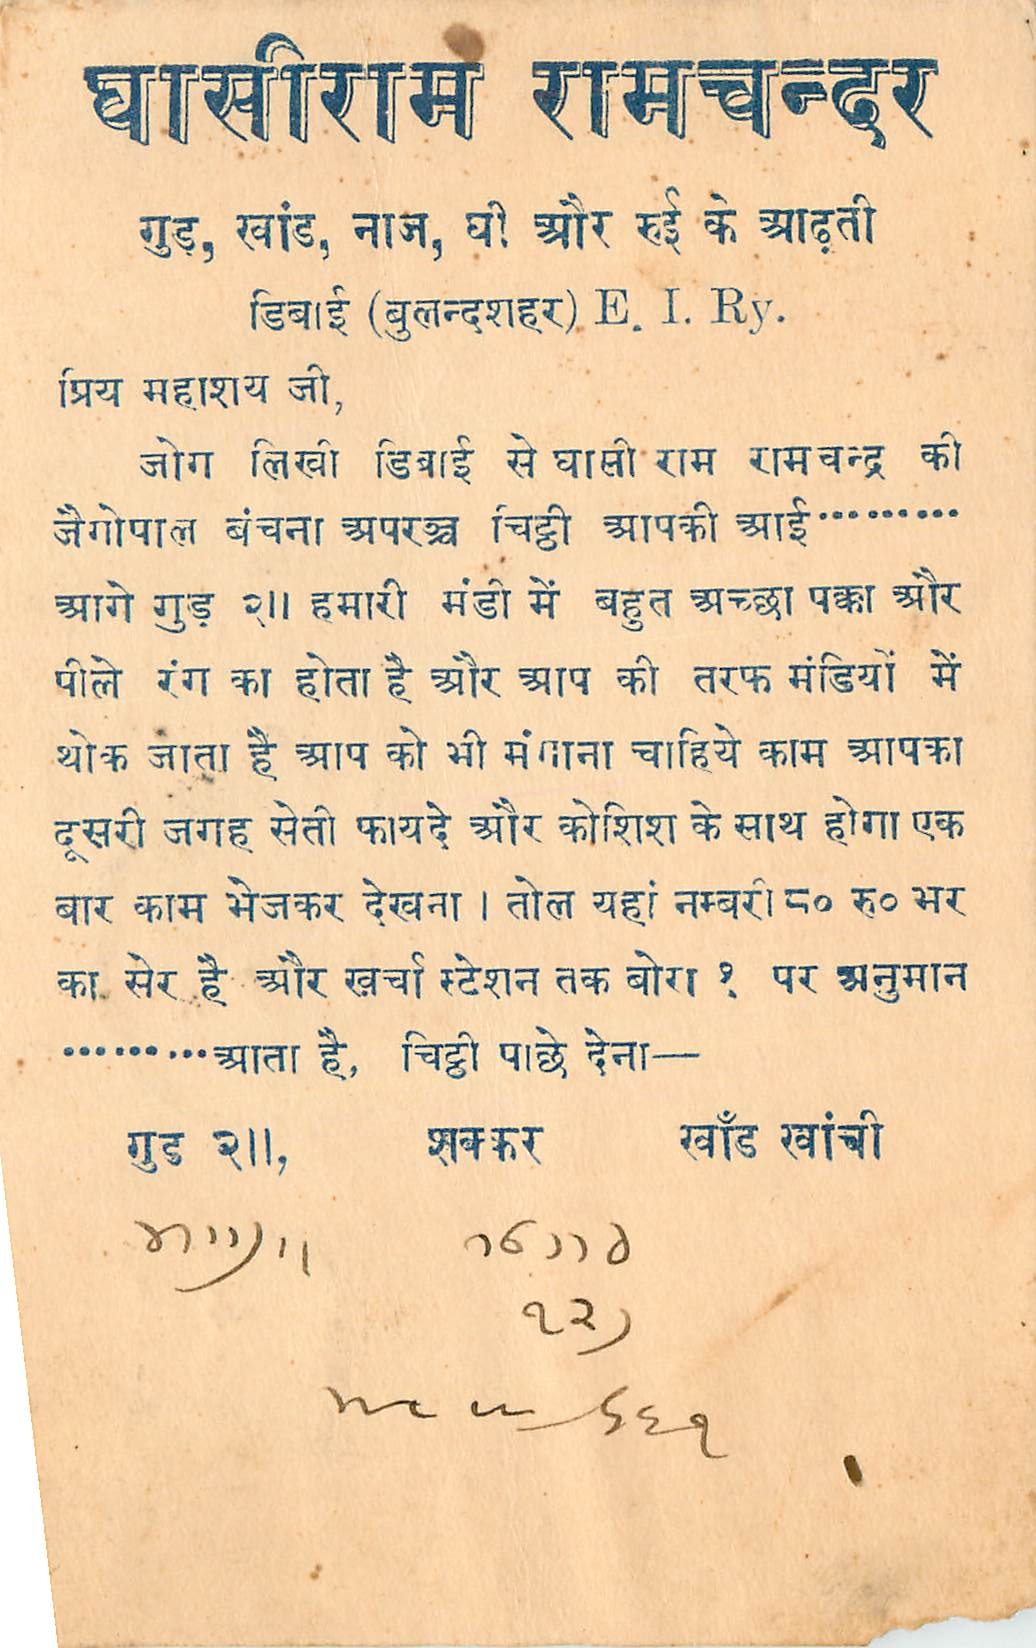 घासीराम रामचन्दर
गुड़, खांड, नाज, घी और रुई के आढ़ती
डिबाई (बुलन्दशहर) E. I. Ry.
प्रिय महाशय जी,
जोग लिखी डिबाई से घासी राम रामचन्द्र की
जैगोपाल बंचना अपरञ्च चिट्ठी आपकी आई·········
आगे गुड़ २॥ हमारी मंडी में बहुत अच्छा पक्का और
पीले रंग का होता है और आप की तरफ मंडियों में
थोक जाता है आप को भी मंगाना चाहिये काम आपका
दूसरी जगह सेती फायदे और कोशिश के साथ होगा एक
बार काम भेजकर देखना । तोल यहां नम्बरी ८० रु० भर
का सेर है और खर्चा स्टेशन तक बोरा १ पर अनुमान
·········आता है, चिट्ठी पाछे देना—
गुड २॥, शक्कर खाँड खांची
१२)